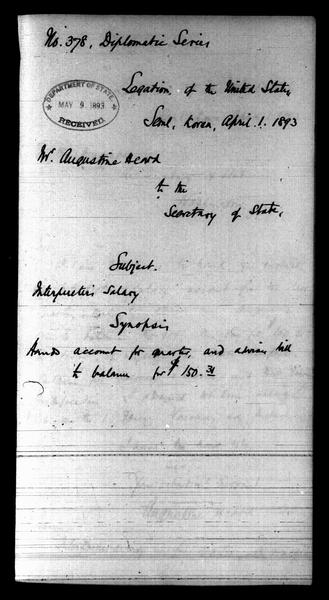 No. 378, Diplomatic Series
Legation of the United States,
Seoul, Korea, April 1. 1893
DEPARTMENT OF STATE
MAY 9 1893
RECEIVED
Mr. Augustine Heard
to the
Secretary of State,
Subject.
Interpreter's Salary
Synopsis
account for quarter, and advises bill
to balance for $150.31